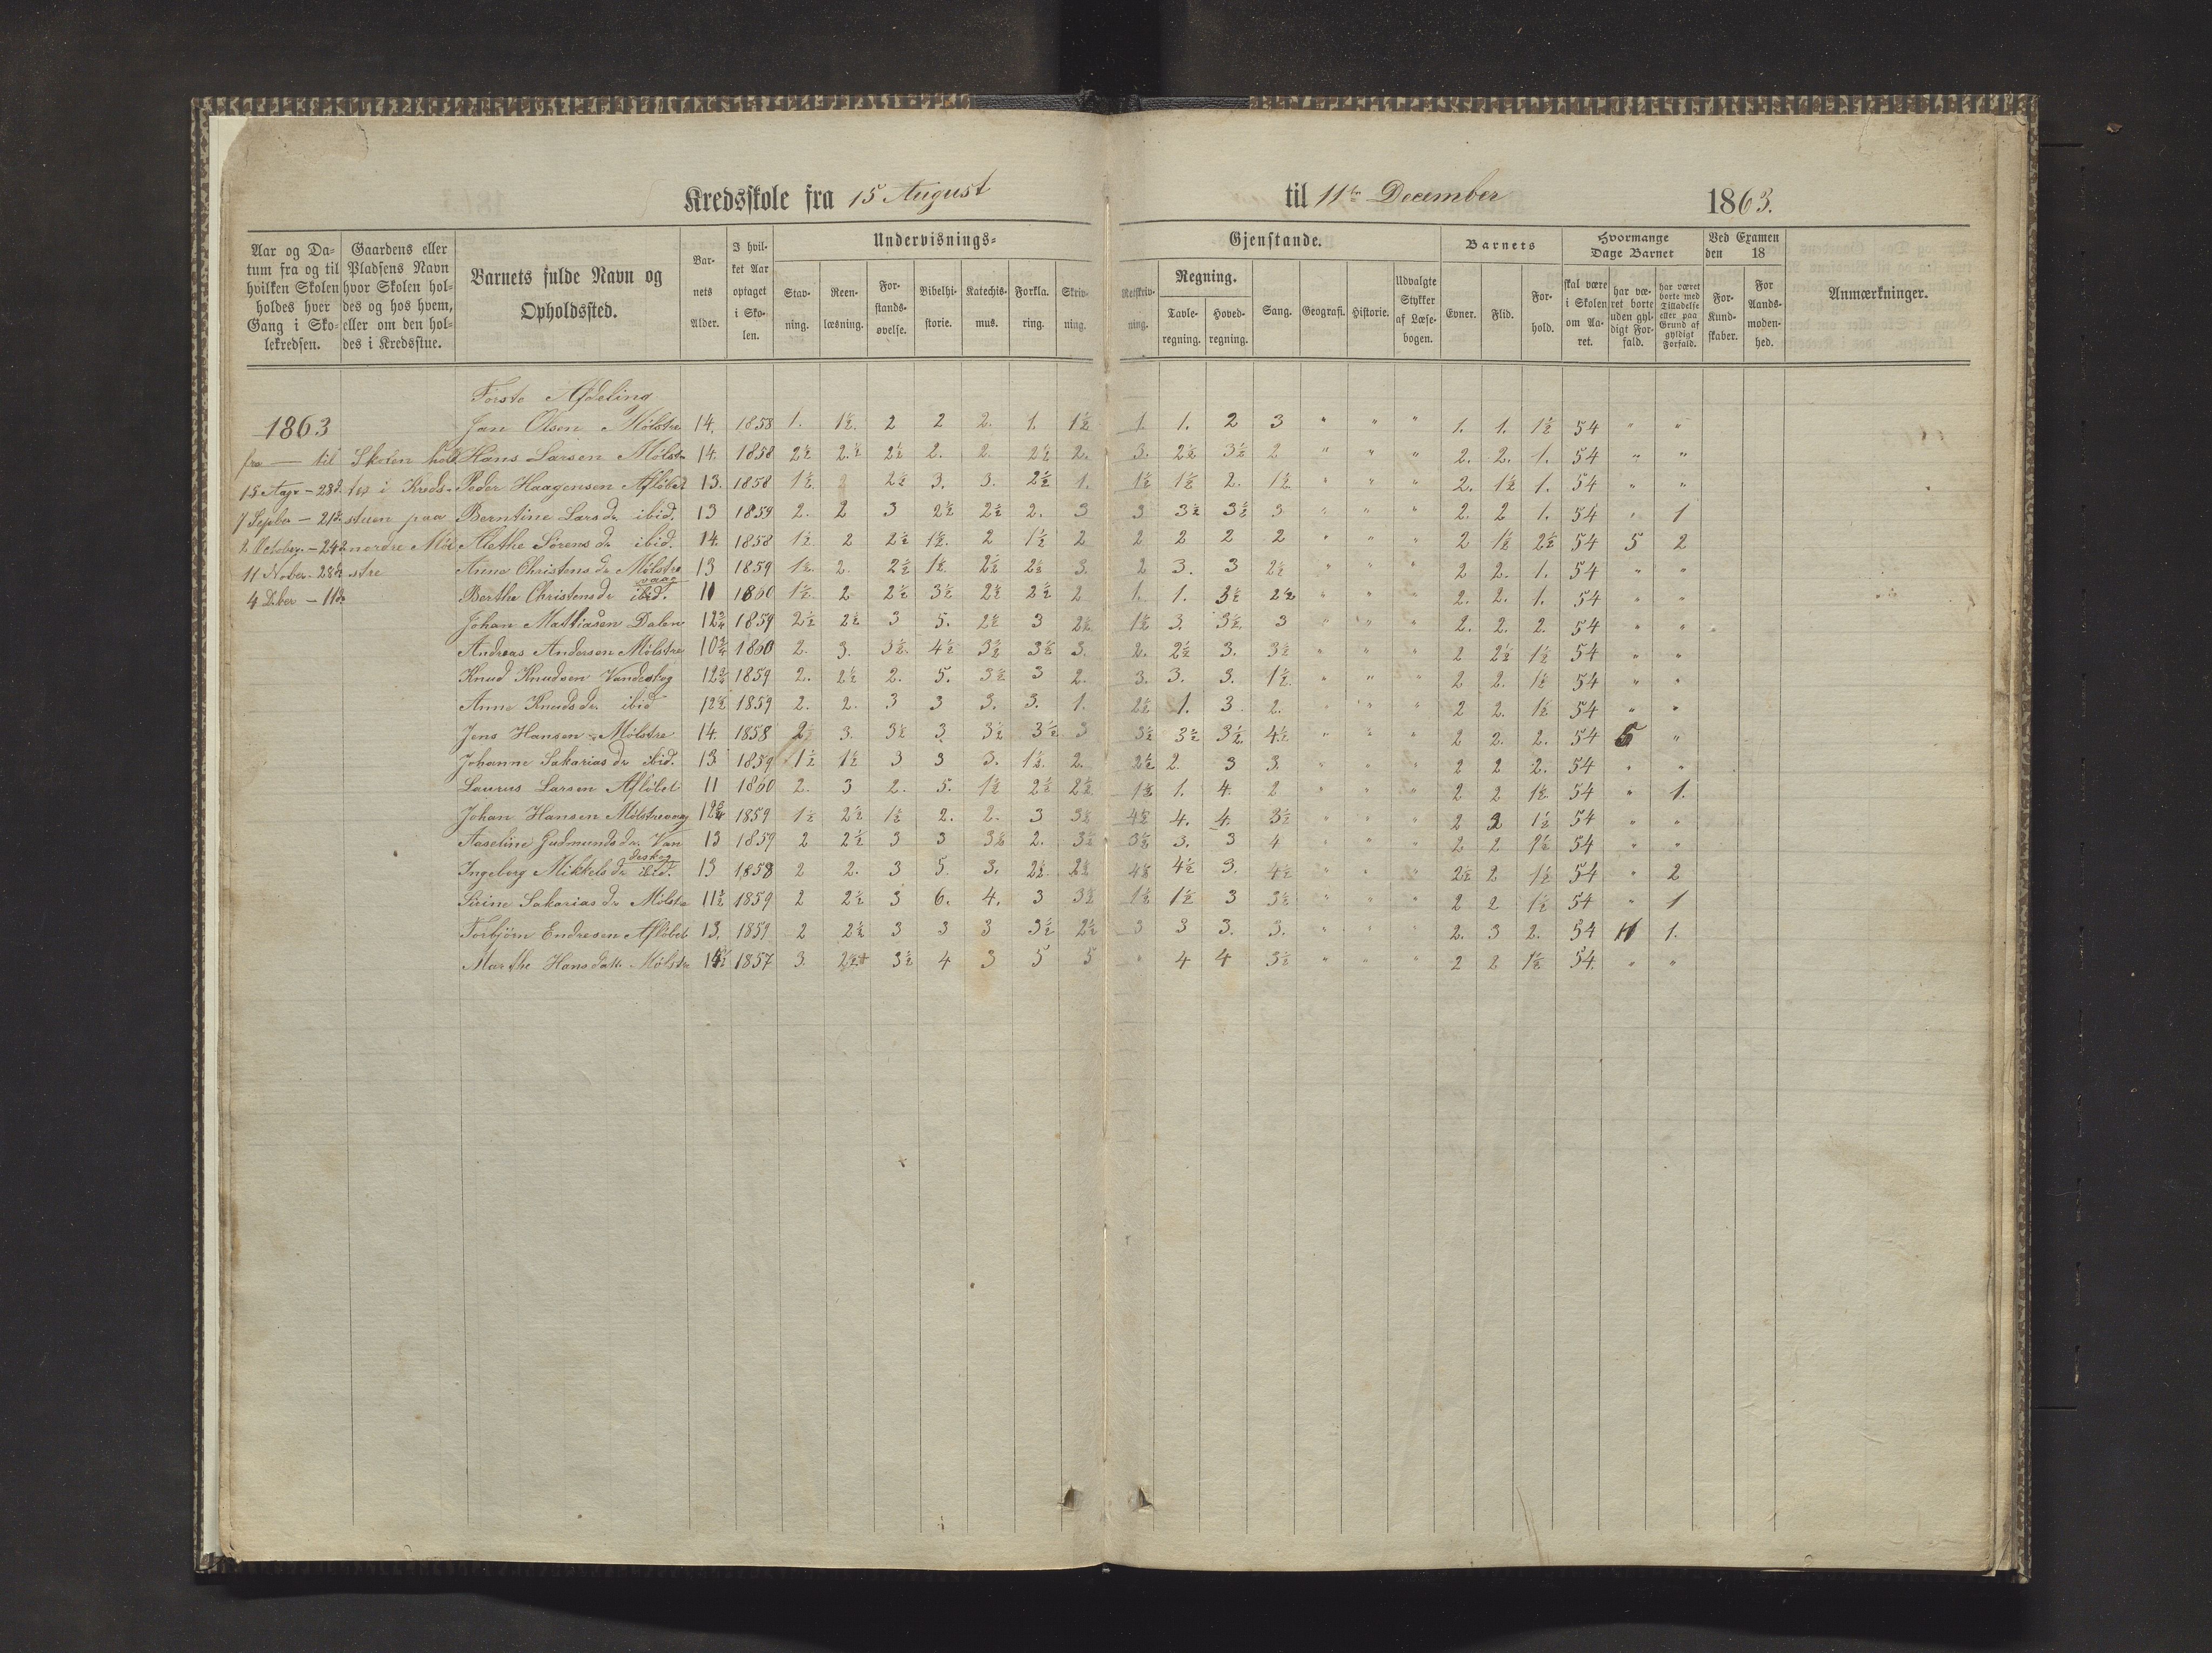 Kredsskole fra 15 August til 11te December 1863.
Aar og Datum fra og til hvilken Skolen holdes hver Gang i Skolekredsen.
Gaardens eller Pladsens Navn hvor Skolen holdes og hos hvem, eller om den holdes i Kredsstue.
Barnets fulde Navn og Opholdssted.
Barnets Alder.
I hvilket Aar optaget i Skolen.
Undervisnings=Gjenstande.
Stavning.
Reenlæsning.
Forstandsøvelse.
Bibelhistorie.
Katechismus.
Forklaring.
Skrivning.
Retskrivning.
Regning.
Tavleregning.
Hovedregning.
Sang.
Geografi.
Historie.
Udvalgte Stykker af Læsebogen.
Barnets
Evner.
Flid.
Forhold.
Hvormange Dage Barnet
skal være i Skolen om Aaret.
har været borte uden gyldigt Forfald.
har været borte med Tilladelse eller paa Grund af gyldigt Forfald.
Ved Examen den 18
For Kundskaber.
For Aandsmodenhed.
Anmærkninger.
Første Afdeling
1863 Jan Olsen Mølstre 14. 1858 1. 1½. 2 2 2. 1. 1½ 1. 1. 2 3 " " " 1. 1. 1½ 54 " "
fra — til Skolen hold Hans Larsen Mølstre 14. 1858 2½ 2.½ 2½ 2. 2. 2½ 2. 3. 2½ 3½ 2 " " " 2. 2. 1. 54 " "
15 Aug – 28d. tes i Kreds- Peder Haagensen Afløbet 13. 1858 1½ 2 2½ 3. 3. 2½ 1. 1½ 1½ 2. 1½ " " " 2. 1½ 1. 54 " "
7 Sepber – 21d. stuen paa Berntine Larsdr. ibid. 13 1859 2. 2 3 2½ 2½ 2. 3 3 3½ 3½ 3 " " " 2. 2 1. 54 " 1
2 October. – 24d nordre Møl Alethe Sørensdr. ibid. 14. 1858 1½ 2 2½ 1½. 2 1½ 2 2 2 2 2 " " " 2 1½ 2½ 54 5 2
11 Nober – 28d. stre Anne Christensdr. Mølstre 13 1859 1½. 2. 2½ 1½ 2½ 2½ 3. 2 3. 3 2½ " " " 2 2. 1. 54 " "
vaag
4 Dber – 11d. Berthe Christensdr. ibid. 11 1860 1½ 2 2½ 3½ 2½ 2½ 2 1. 1. 3½ 2½ " " " 2. 2. 1. 54 " "
Johan Mathiasen Dalen 12¾ 1859 2½ 2½ 3 5. 2½ 3 2½ 1½ 3. 3½ 3 " " " 2. 2. 2. 54 " "
Andreas Andersen Mølstre 10¾ 1860 2. 3. 3½ 4½ 3½ 3½ 3. 2. 2½ 3. 3½ " " " 2 2½ 1½ 54 " "
Knud Knudsen Vandeskog 1859 2. 2½ 2. 5. 3½ 3 2. 3. 3. 3. 1½ " " " 2 2. 1½ 54 " "
Anne Knudsdr. ibid 12½ 1859 2. 2. 3 3 3. 3. 1. 2½ 1. 3. 2. " " " 2 2. 1½ 54 " "
Jens Hansen Mølstre 14. 1858 2½ 3. 3½ 3 3½ 3½ 3 3½ 3½ 3½ 4½ " " " 2 2. 2. 54 5 "
Johanne Sakariasdr. ibid. 13 1859 1½ 1½ 3 3 3. 1½ 2. 2½ 2. 3 3. " " " 2 2 2. 54 " "
Laurus Larsen Afløbet 11 1860 2. 3 2. 5. 1½ 2½ 2½ 1½ 1. 4. 2 " " " 2 2 1½ 54 " 1.
Johan Hansen Mølstrevaag 1859 1½ 2½ 1½ 2. 2. 3 3½ 4½ 4. 4. 3½ " " " 2 2 1½ 54 " "
Aaseline Gudmundsdr. Van 13 1859 2 2½ 3 3 3½ 2. 3½ 3½ 3. 3 4 " " " 2 2 54 " "
deskog
Ingeborg Mikkelsdr. ibid. 13 1858 2 2. 3 5. 3. 2½ 2½ 4½ 4½ 3. 4½ " " " 2½ 2 1½ 54 " 2
Sakariasdr. Mølstre 11½ 1859 2 2½ 3 6. 4. 3 3½ 1½ 1½ 3 3½ " " " 2 2 1½ 54 " 1
Torbjørn Endresen Afløbet 13. 1859 2 2½ 3 3 3 3½ 2½ 3 3 3. 3. " " " 2. 3 2. 54 11 1.
Marthe Hansdatt. Mølstre 1857 3. 3½ 4 3 5 5 " 4 4 3½ " " " 2 2 1½ 54. " "